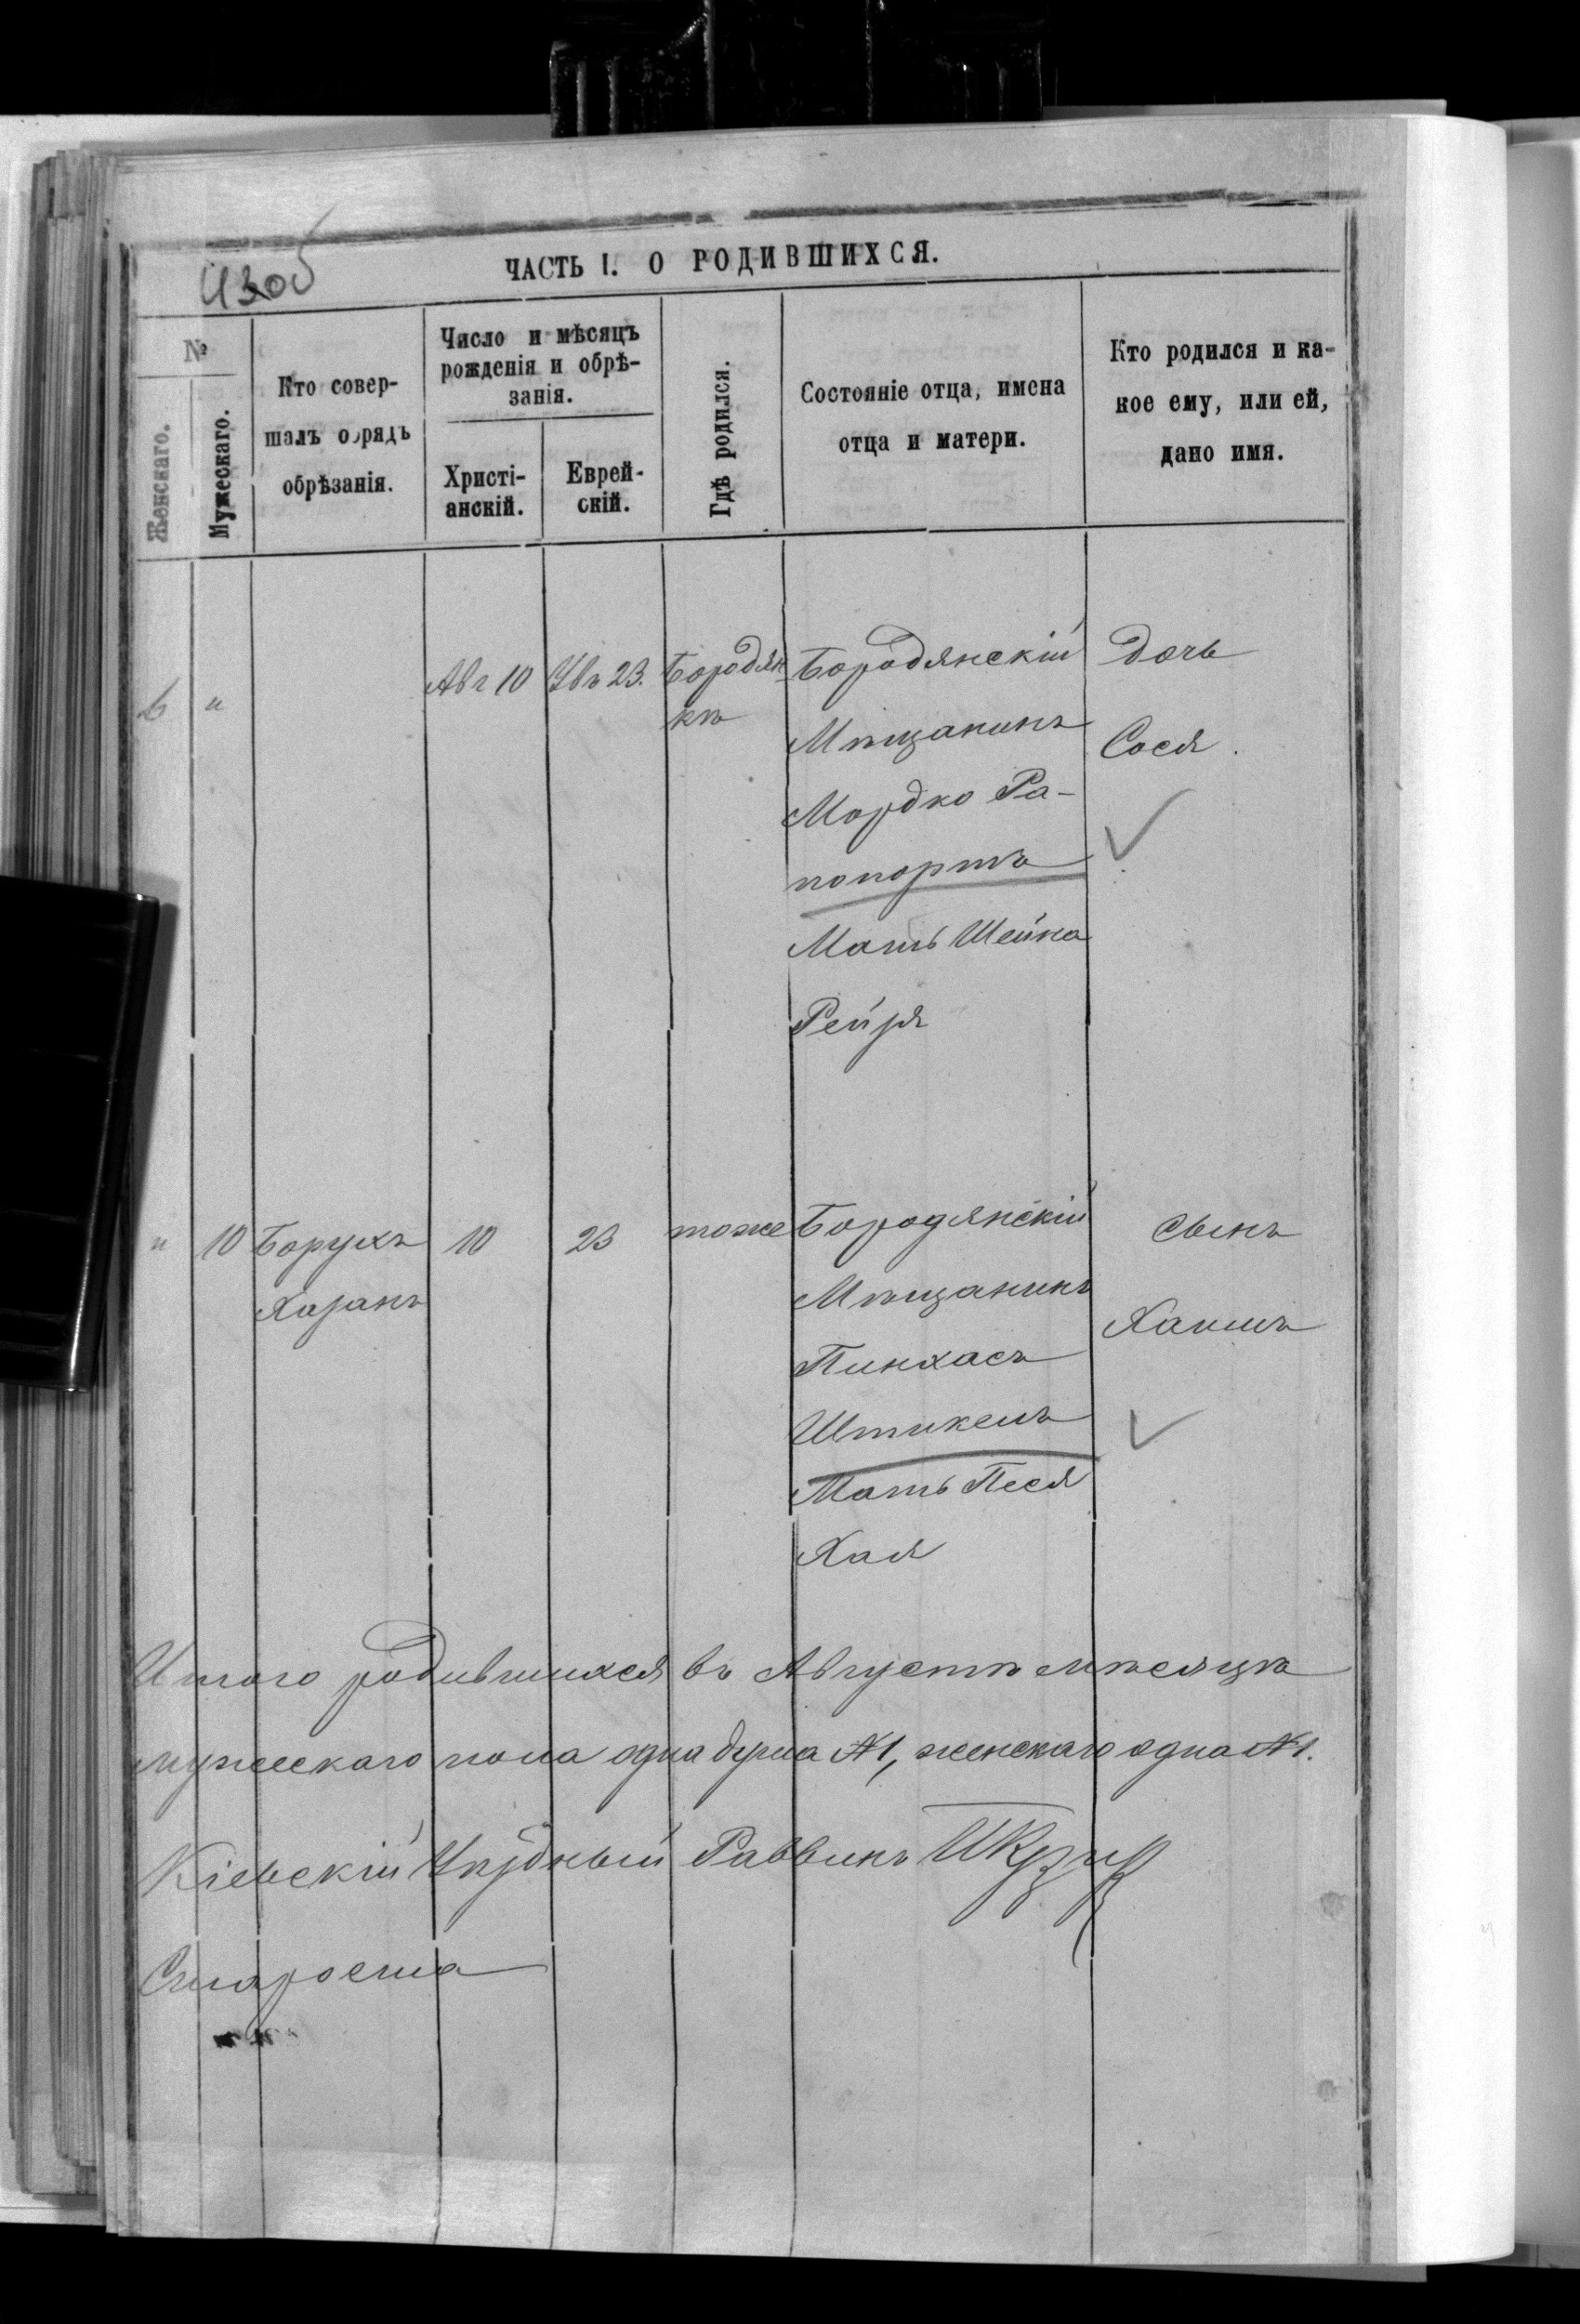 430об
ЧАСТЬ I. О РОДИВШИХСЯ.
№
Женскаго.
Мужескаго.
Кто совер-
шалъ обрядъ
обрѣзанія.
Число и мѣсяцъ
рожденія и обрѣ-
занія.
Христі-
анскій.
Еврей-
скій.
Гдѣ родился.
Состояніе отца, имена
отца и матери.
Кто родился и ка-
кое ему, или ей,
дано имя.
6 " Авг 10 23. Бородян
кѣ
Бородянскій
Мѣщанинъ
Мордко Ра-
попортъ
Мать Шейна
Рейзя
Дочь
Сося.
" 10 Борухъ
Хазанъ
10 23 тоже
Бородянскій
Мѣщанинъ
Пинхасъ
Мать Песя
Хая
Сынъ
Хаимъ
Итого родившихся въ Августѣ мѣсяцѣ
мужескаго пола одна душа №1, женскаго одна №1.
Кіевскій Уѣздный Раввинъ
Староста